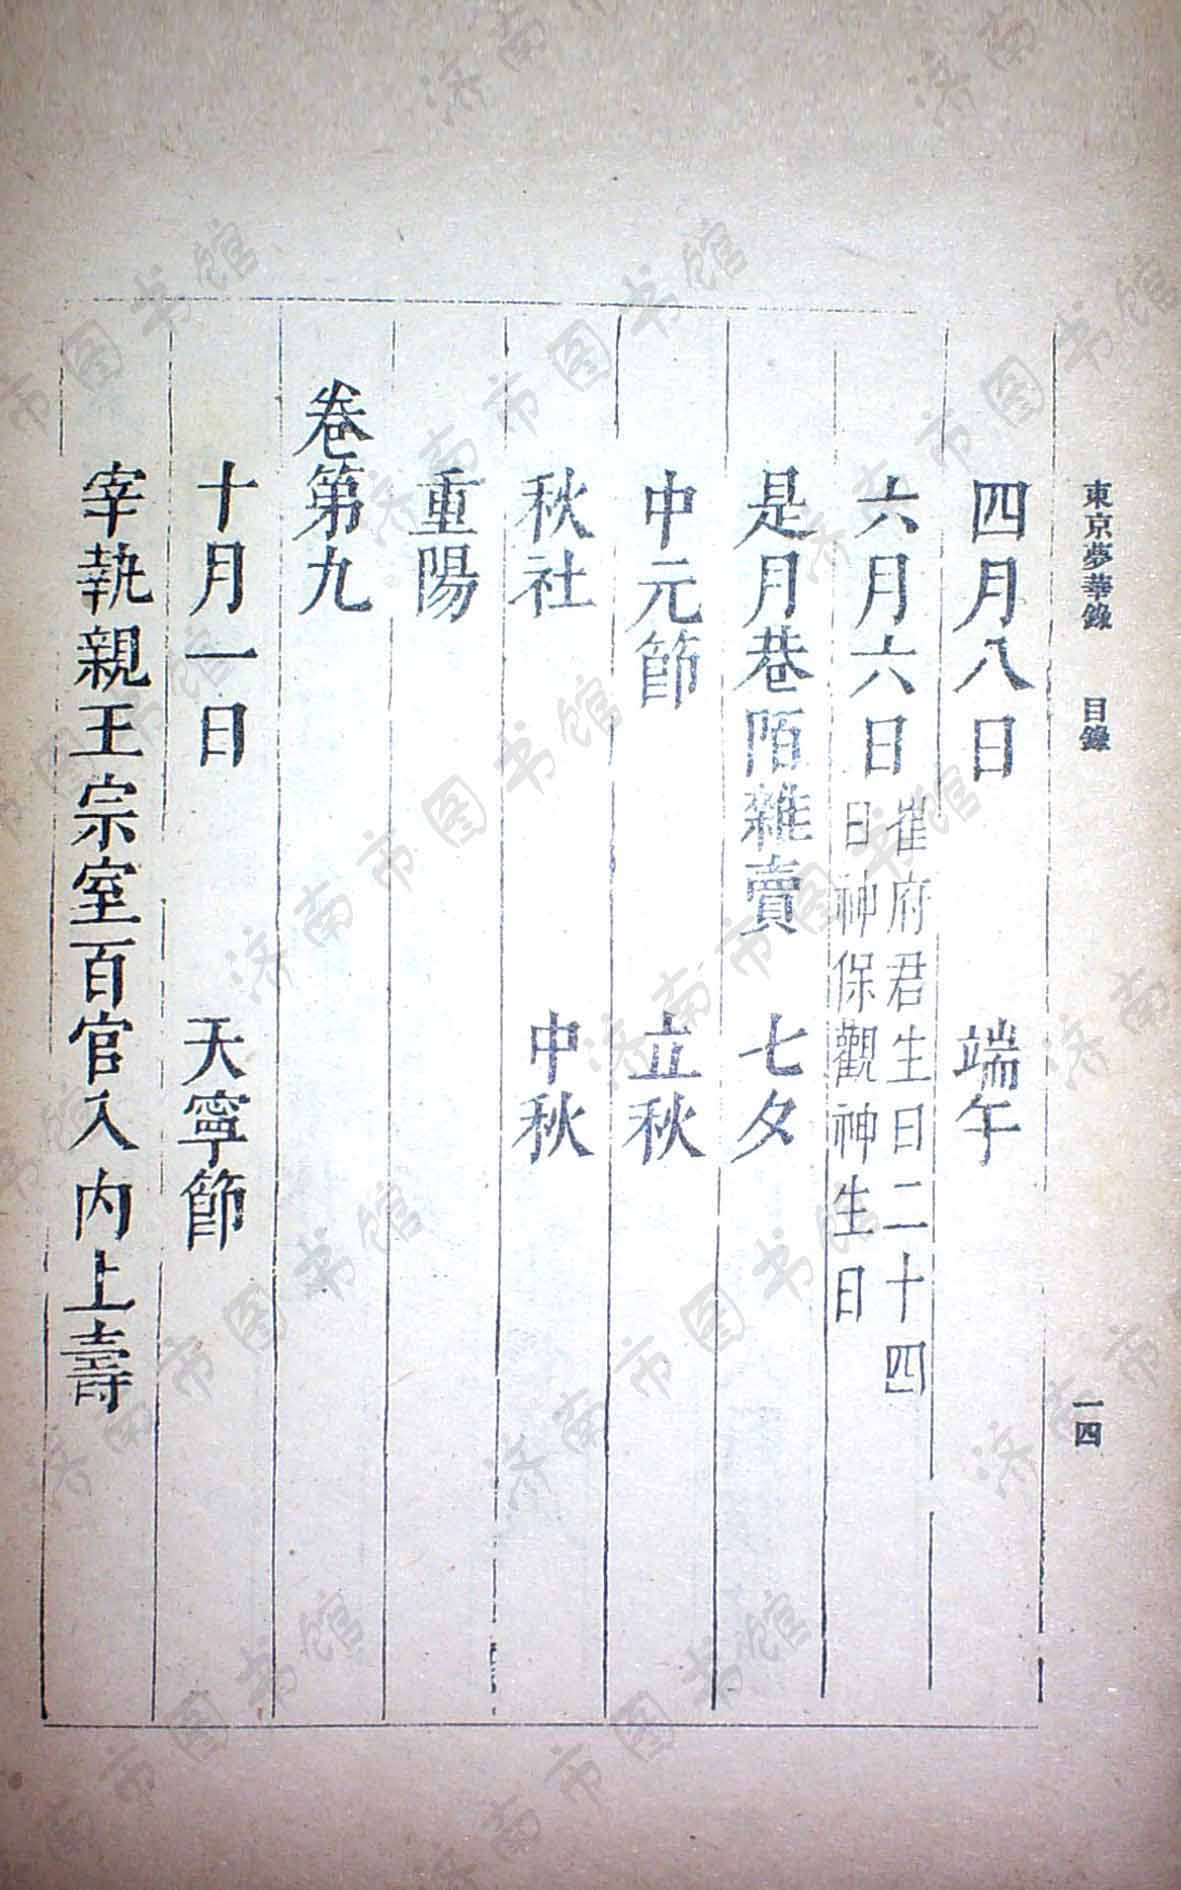 東京夢華錄　目錄　一四
四月八日　端午
六月六日崔府君生日二十四
日神保觀神生日
是月巷陌雜賣　七夕
中元節　立秋
秋社　中秋
重陽
卷第九
十月一日　天寧節
宰執親王宗室百官入內上壽
济南市图书馆